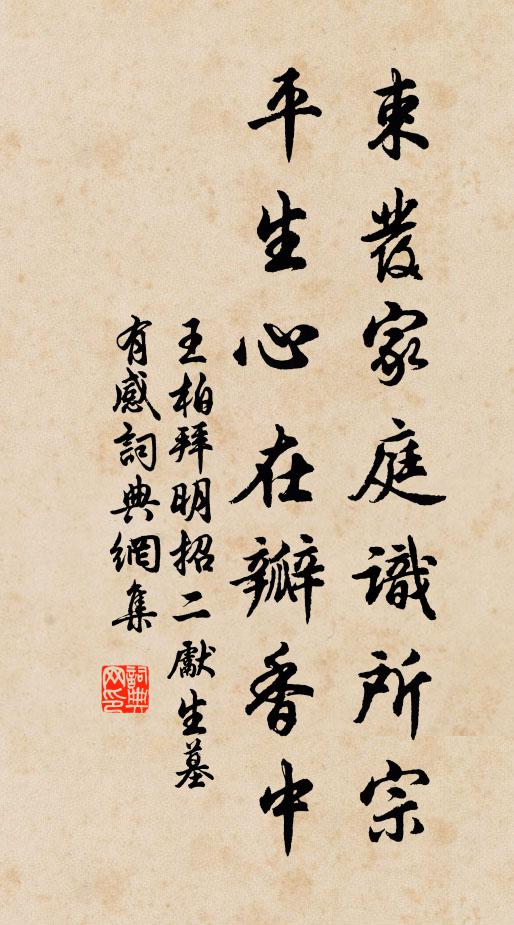 束發家庭識所宗
平生心在瓣香中
王柏拜明招二獻生墓
有感詞典網集
詞典網印